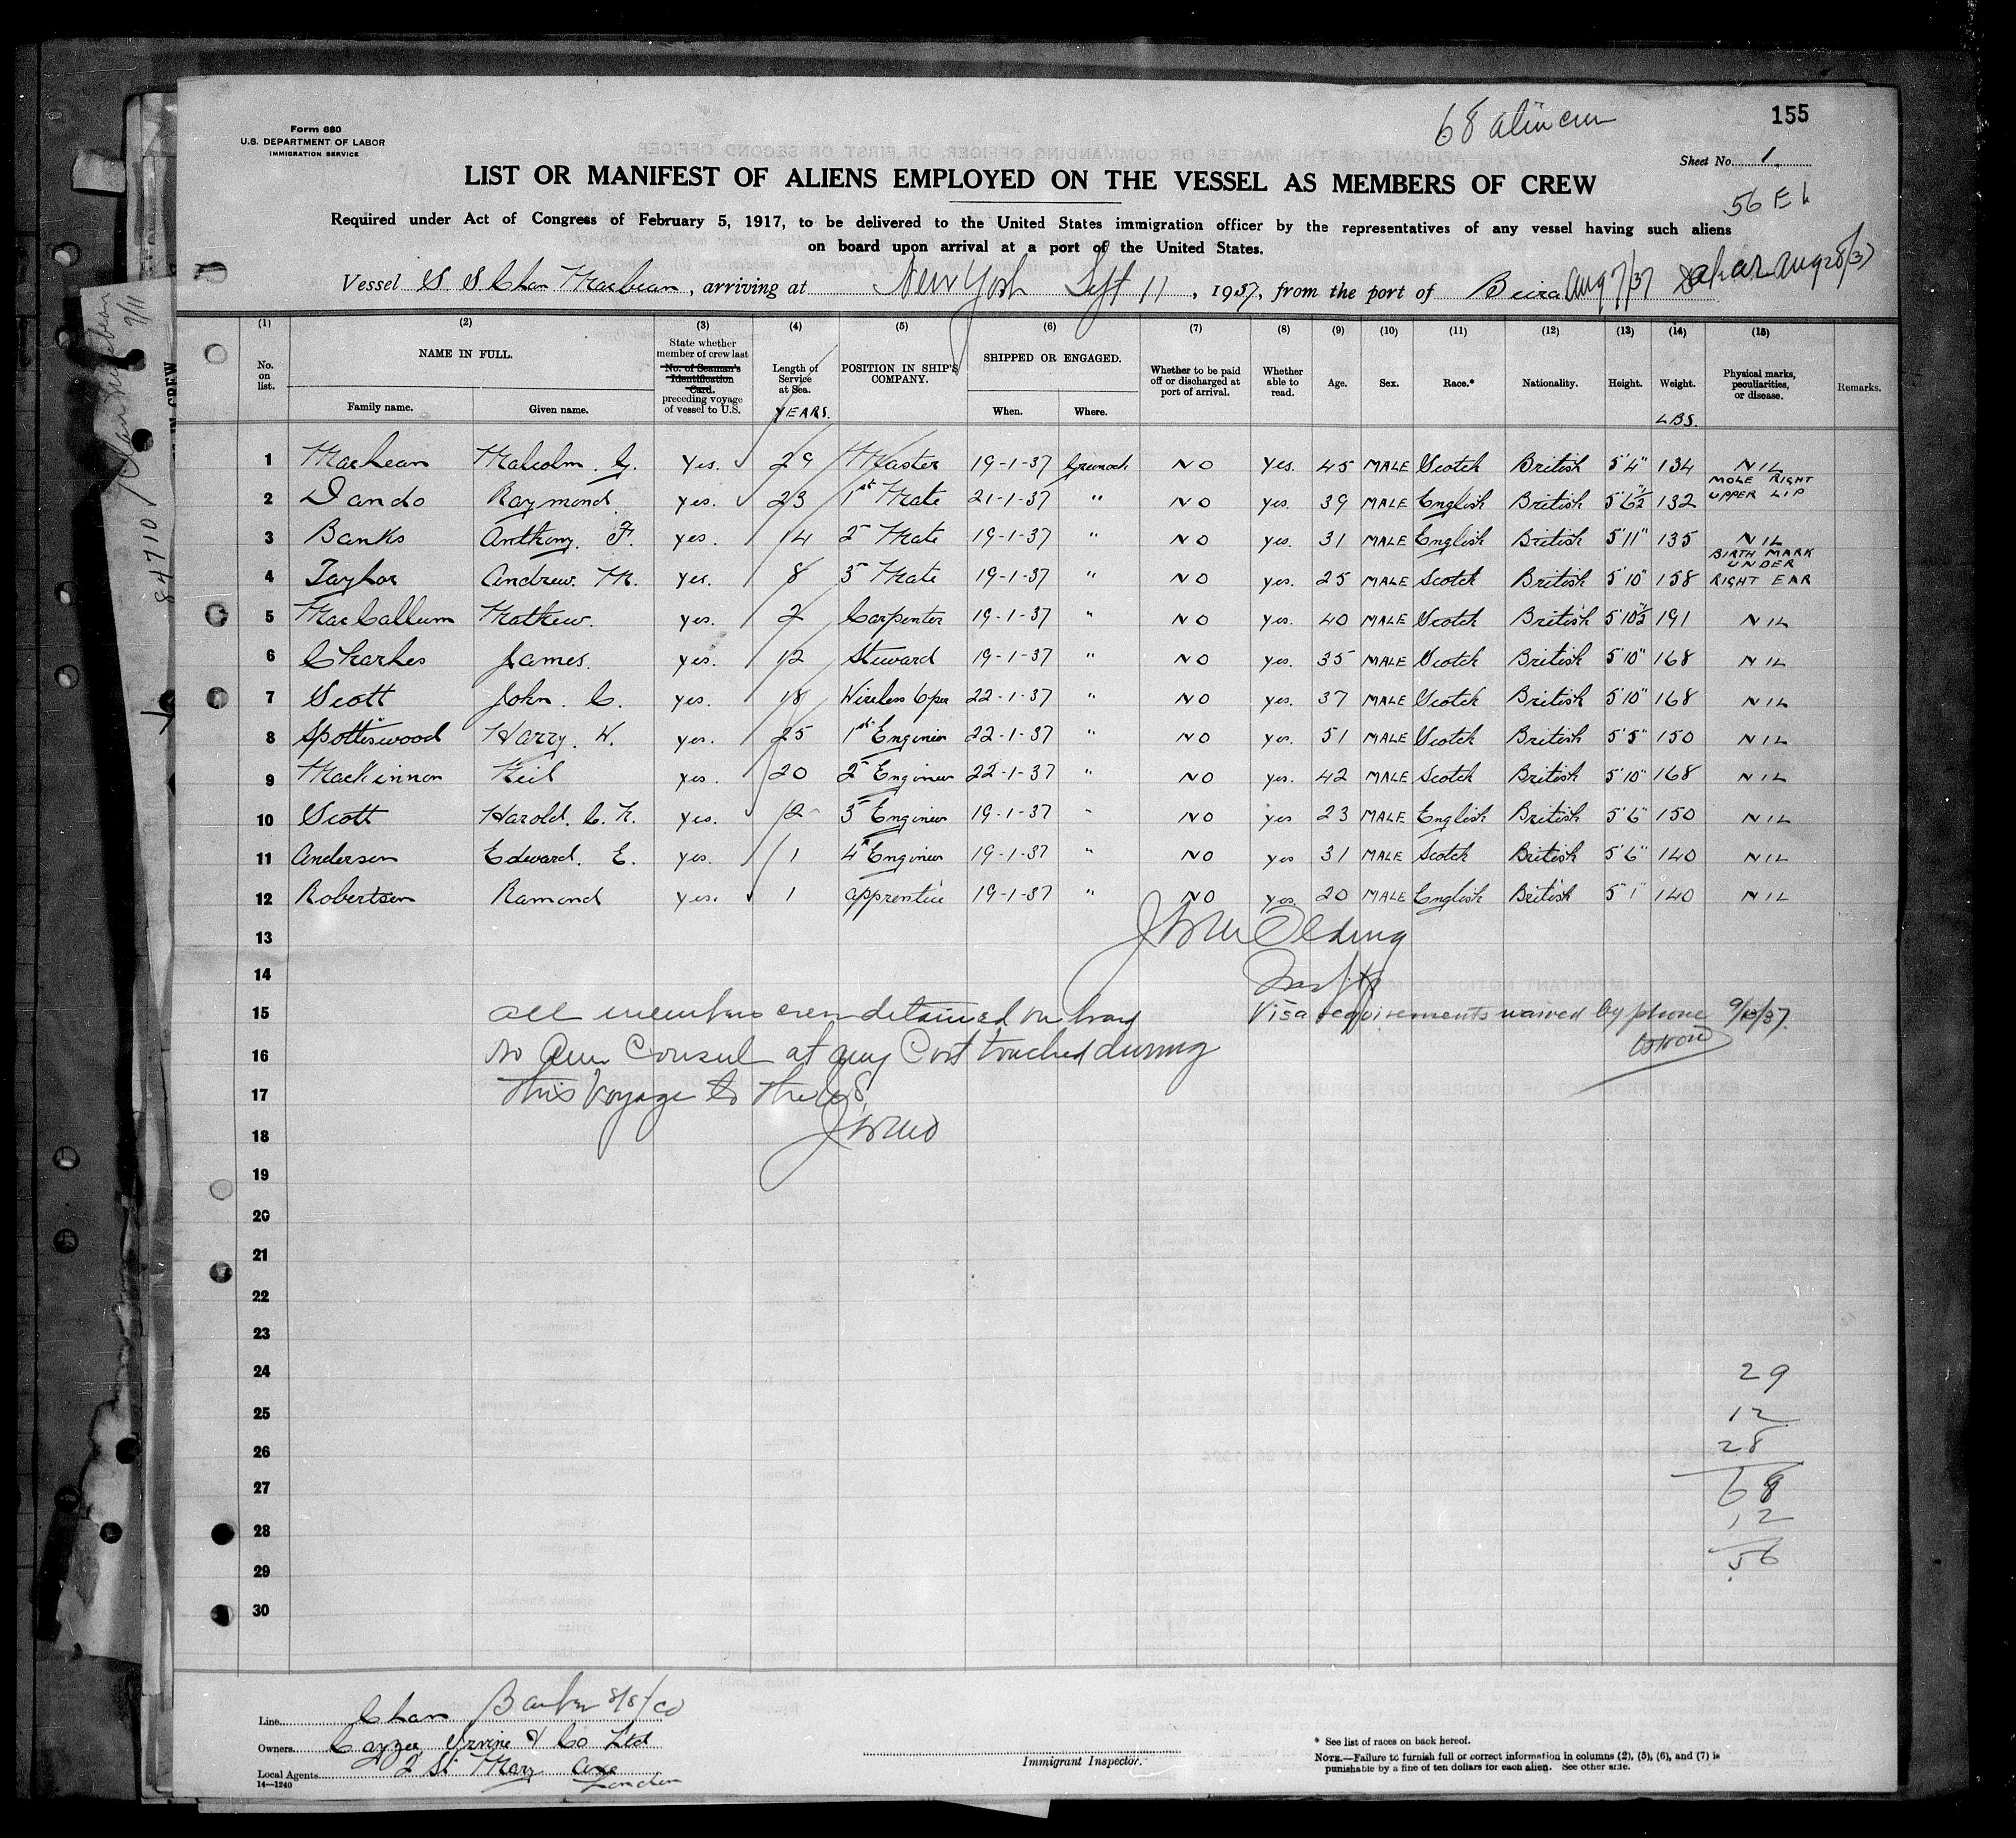 68 alien crew
155
Form 680
U.S. DEPARTMENT OF LABOR
IMMIGRATION SERVICE
Sheet No. 1.
LIST OR MANIFEST OF ALIENS EMPLOYED ON THE VESSEL AS MEMBERS OF CREW
56 E
Required under Act of Congress of February 5, 1917, to be delivered to the United States immigration officer by the representatives of any vessel having such aliens
on board upon arrival at a port of the United States.
Vessel S. S. Clan Macbean, arriving at New York Sept 11, 1937, from the port of Beira Aug 7/37 Dakar Aug 28/37
(1) (2) (3) (4) (5) (6) (7) (8) (9) (10) (11) (12) (13) (14) (15)
No. on list. NAME IN FULL. Family name. Given name. State whether member of crew last No. of Seaman's Identification Card. preceding voyage of vessel to U.S. Length of Service at Sea. YEARS. POSITION IN SHIP'S COMPANY. SHIPPED OR ENGAGED. When. Where. Whether to be paid off or discharged at port of arrival. Whether able to read. Age. Sex. Race.* Nationality. Height. Weight. LBS. Physical marks, peculiarities, or disease. Remarks.
1 MacLean Malcolm. G. Yes. 29 Master 19-1-37 Greenock NO Yes. 45 MALE Scotch British 5'4" 134 NIL
2 Dando Raymond yes. 23 1st Mate 21-1-37 " NO yes. 39 MALE English British 5'6½" 132 MOLE RIGHT UPPER LIP
3 Banks Anthony. F. yes. 14 2nd Mate 19-1-37 " NO yes. 31 MALE English British 5'11" 135 NIL
4 Taylor Andrew. M. yes. 8 3rd Mate 19-1-37 " NO yes. 25 MALE Scotch British 5'10" 158 BIRTH MARK UNDER RIGHT EAR
5 MacCallum Mathew. yes. 2 Carpenter 19-1-37 " NO yes. 40 MALE Scotch British 5'10½" 191 NIL
6 Charles James. yes. 12 Steward 19-1-37 " NO yes. 35 MALE Scotch British 5'10" 168 NIL
7 Scott John. C. yes. 18 Wireless Oper 22-1-37 " NO yes. 37 MALE Scotch British 5'10" 168 NIL
8 Spottiswood Harry. W. yes. 25 1st Engineer 22-1-37 " NO yes. 51 MALE Scotch British 5'5" 150 NIL
9 MacKinnon Neil yes. 20 2nd Engineer 22-1-37 " NO yes. 42 MALE Scotch British 5'10" 168 NIL
10 Scott Harold. C. N. yes. 2 3rd Engineer 19-1-37 " NO yes 23 MALE English British 5'6" 150 NIL
11 Anderson Edward. E. yes. 1 4th Engineer 19-1-37 " NO yes 31 MALE Scotch British 5'6" 140 NIL
12 Robertson Ramond yes. 1 apprentice 19-1-37 " NO yes 20 MALE English British 5'1" 140 NIL
13
14
15 all members crew detained on board Visa requirements waived by phone 9/13/37.
16 No Am Consul at any Port touched during
17 this voyage to the U.S.
18
19
20
21
22
23
24 29
25 12
26 28
27 68
12
28
56
29
30
Line Clan Barber S/S/Co
Owners Cayzer Irvine & Co Ltd
Local Agents 2 St Mary Axe London
14—1240
Immigrant Inspector.
* See list of races on back hereof.
NOTE.—Failure to furnish full or correct information in columns (2), (5), (6), and (7) is
punishable by a fine of ten dollars for each alien. See other side.
84710
Clan Macbean
9/11